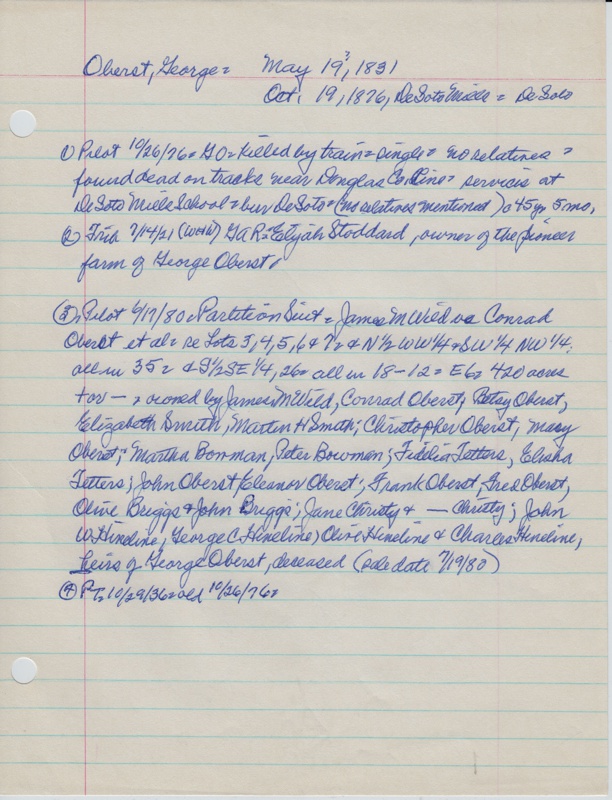 Oberst, George = May 19?, 1831
Oct. 19, 1876, DeSoto Mills = DeSoto
1) Pilot 10/26/76 = GO = Killed by train = single = no relatives =
found dead on tracks near Douglas Co Line = services at
DeSoto Mills School = bur DeSoto = (no relatives mentioned) a 45 yr 5 mo,
2) Trib 7/14/21, (W&W) Ga P = Elijah Stoddard, owner of the pioneer
farm of George Oberst,
3) Pilot 6/17/80 = Partition Suit = James M Wild vs Conrad
Oberst et al = re Lots 3, 4, 5, 6 & 7 = & N 1/2 NW 1/4 = SW 1/4 NW 1/4;
all in 35 = & S 1/2 SE 1/4, 26 = all in 18-12 = E6 = 420 acres
tor — = owned by James M Wild, Conrad Oberst, Betsy Oberst,
Elizabeth Smith, Martin H Smith; Christopher Oberst, Mary
Oberst; Martha Bowman, Peter Bowman; Fidelia Tetters, Elisha
Tetters; John Oberst, Eleanor Oberst; Frank Oberst, Fred Oberst,
Olive Briggs & John Briggs; Jane Christy & — Christy; John
W. Hineline, George C. Hineline, Olive Hineline & Charles Hineline,
Heirs of George Oberst, deceased (sale date 7/19/80)
4) PT = 10/29/36 = old 10/26/76 =